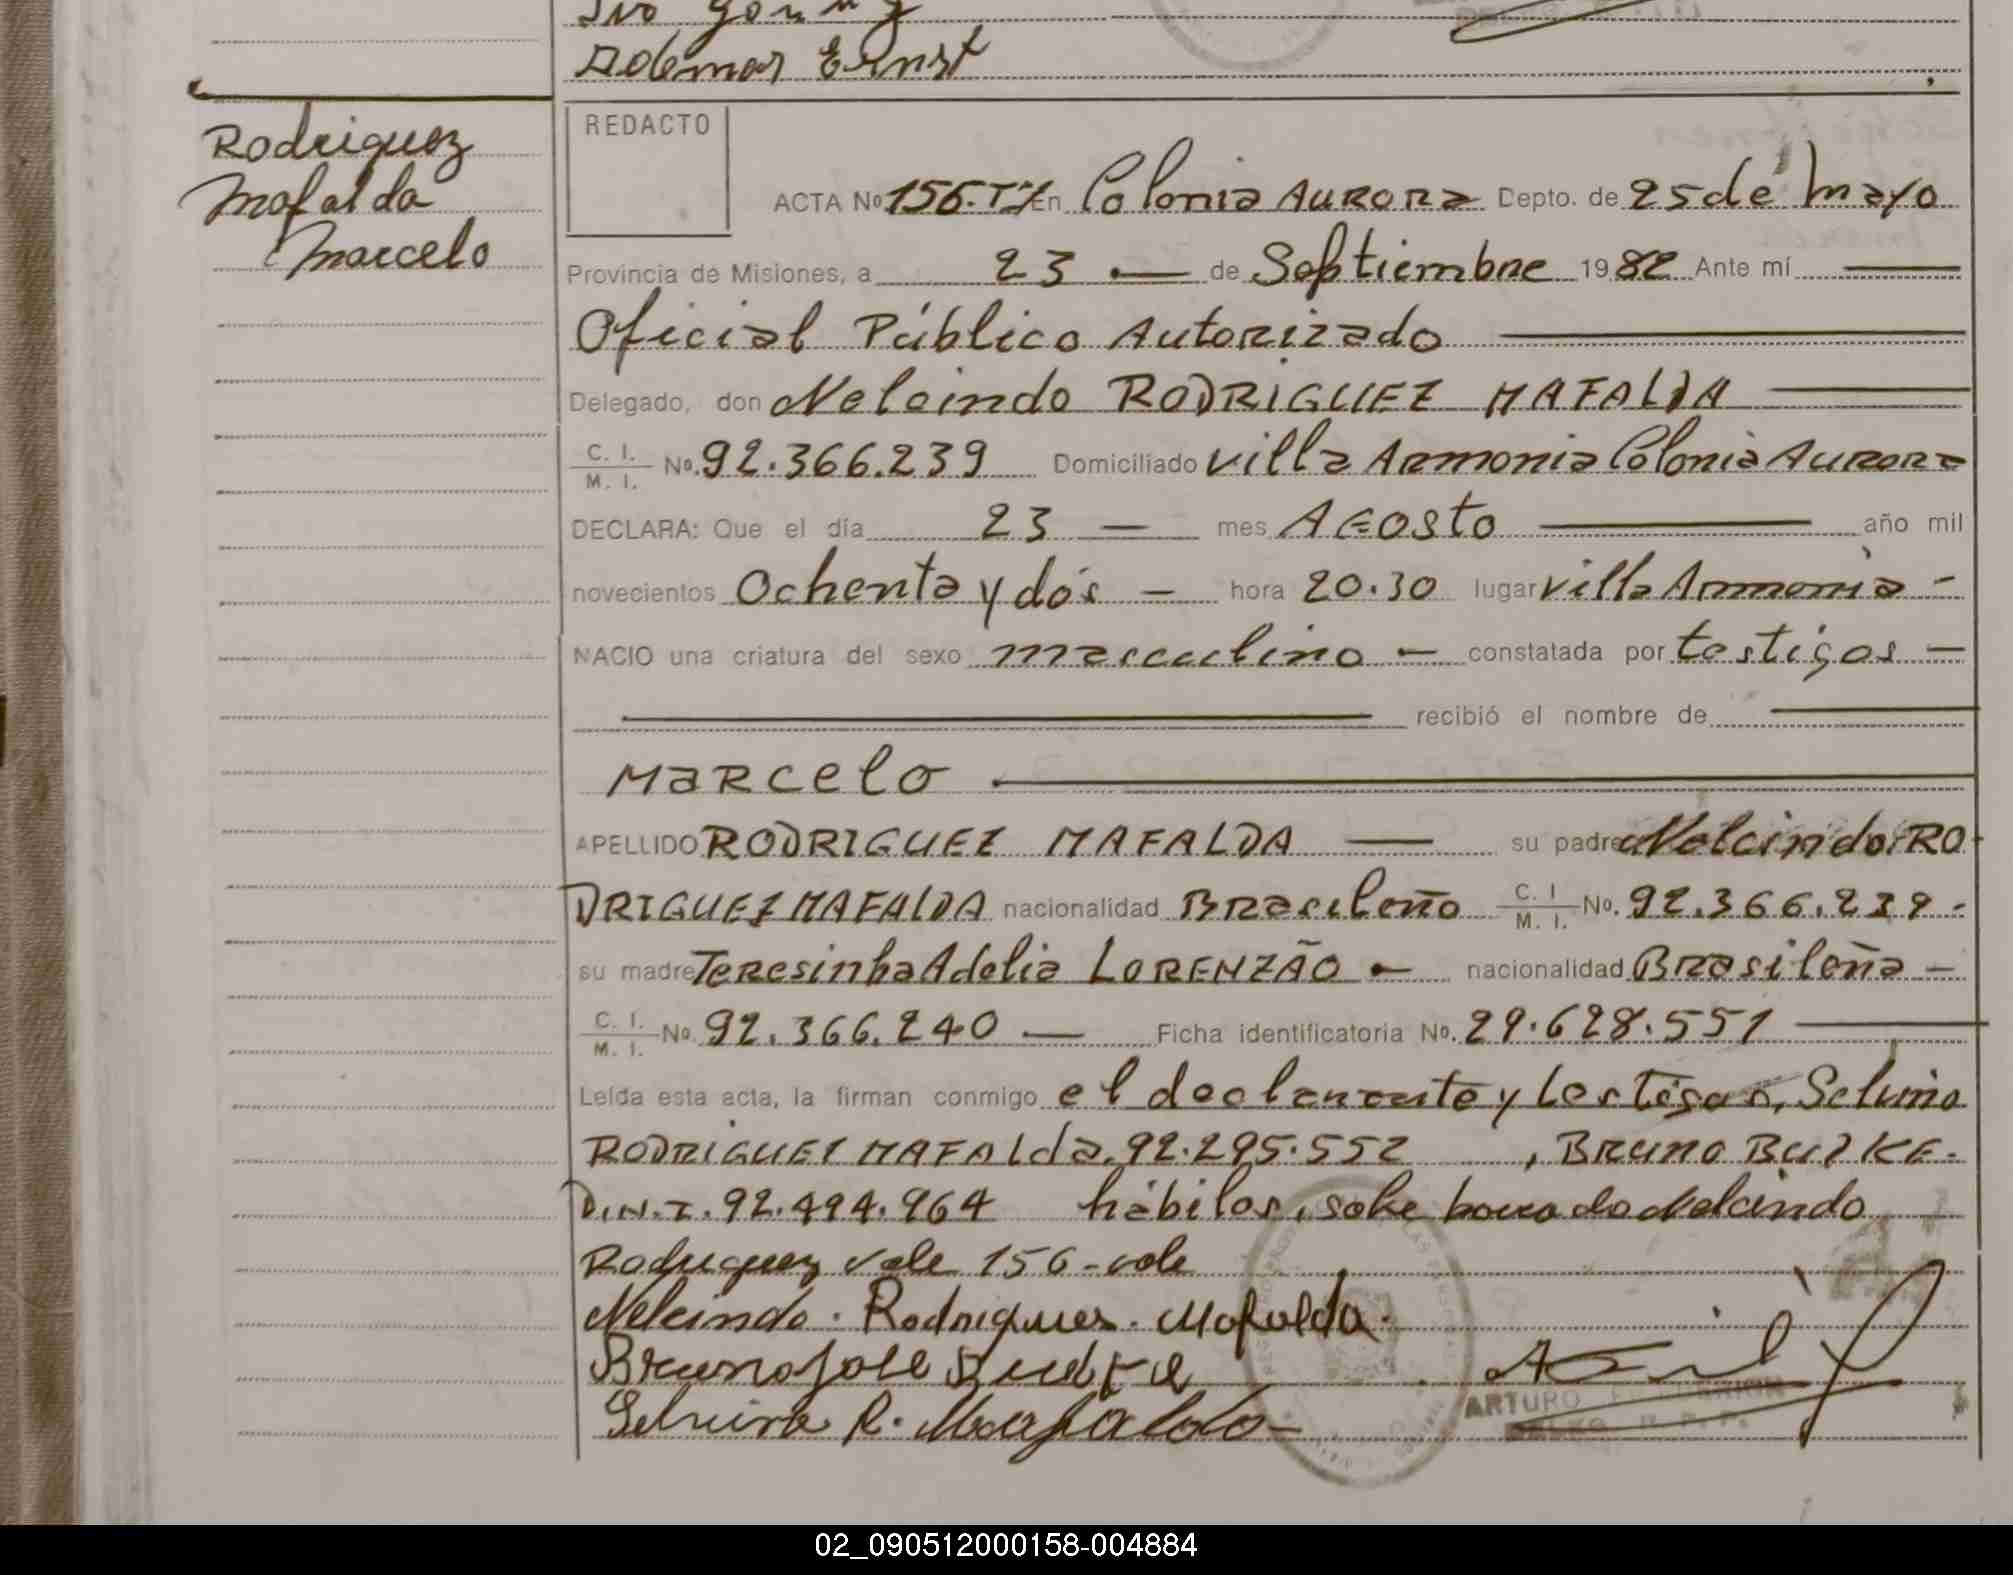 Ivo
Ademar Ernst
Rodriguez
Mafalda
Marcelo
REDACTO
ACTA Nº 156. Tº I En Colonia AURORA Depto. de 25 de Mayo
Provincia de Misiones, a 23 de Septiembre 1982 Ante mí
Oficial Público Autorizado
Delegado, don Nelcindo RODRIGUEZ MAFALDA
C. I. / M. I. Nº. 92.366.239 Domiciliado Villa Armonia Colonia AURORA
DECLARA: Que el día 23 mes AGOSTO año mil
novecientos Ochenta y dós hora 20.30 lugar Villa Armonia
NACIO una criatura del sexo masculino constatada por testigos
recibió el nombre de
MARCELO
APELLIDO RODRIGUEZ MAFALDA su padre Nelcindo RO
DRIGUEZ MAFALDA nacionalidad Brasileño C. I / M. I. Nº. 92.366.239
su madre Teresinha Adelia LORENZÃO nacionalidad Brasileña
C. I. / M. I. Nº. 92.366.240 Ficha identificatoria Nº. 29.628.551
Leída esta acta, la firman conmigo el declarante y testigos, Selvino
RODRIGUEZ MAFALda. 92.295.552 , BRUNO BUZKE.
D.N.I. 92.494.964 hábiles, sobre borrado Nelcindo
Rodriguez vale 156 - vale
Nelcindo . Rodrigues . Mafalda .
Bruno José
Selvino R. Mafaldo
ARTURO